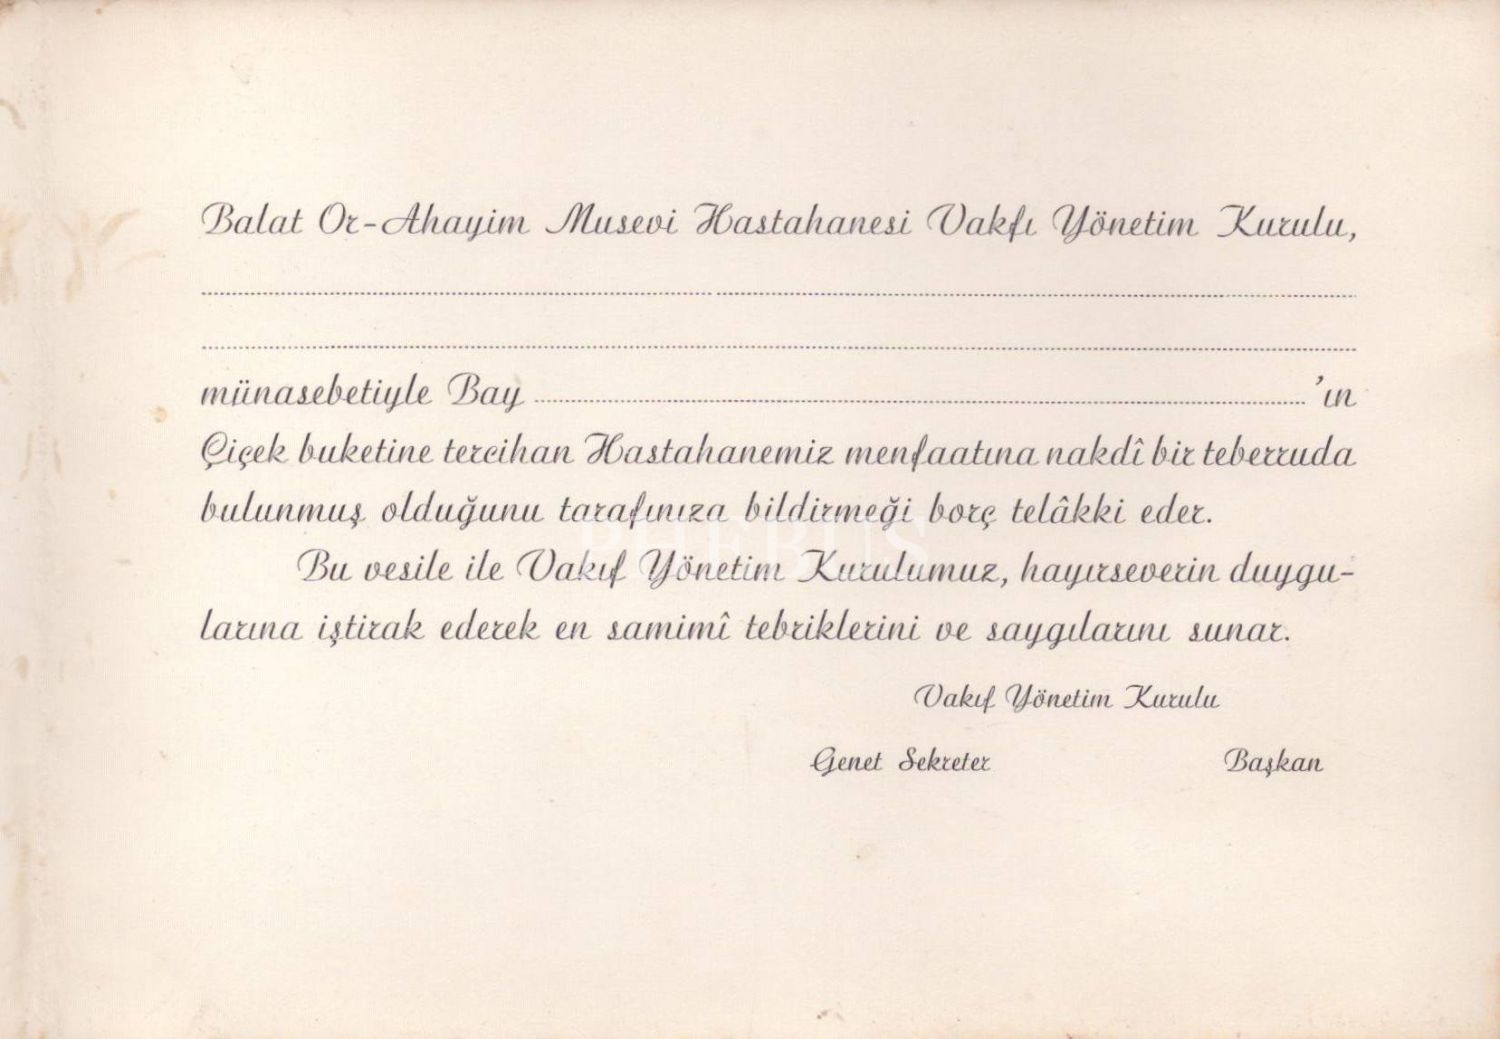 Balat Or-Ahayim Musevi Hastahanesi Vakfı Yönetim Kurulu,
münasebetiyle Bay ........................ 'ın
Çiçek buketine tercihan Hastahanemiz menfaatına nakdî bir teberruda
bulunmuş olduğunu tarafınıza bildirmeği borç telâkki eder.
PHEBUS
Bu vesile ile Vakıf Yönetim Kurulumuz, hayırseverin duygu-
larına iştirak ederek en samimî tebriklerini ve saygılarını sunar.
Vakıf Yönetim Kurulu
Genet Sekreter Başkan